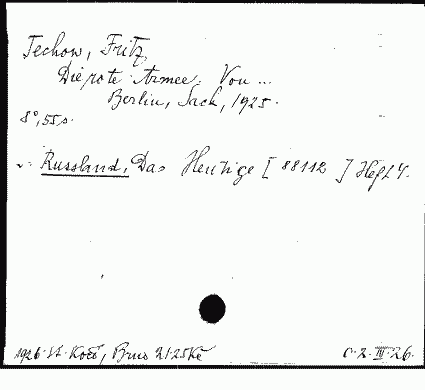 Techow, Fritz
Die rote Armee. Von ...
Berlin, Sack, 1925.
8°, 55 s.
v. Russland, Das Heutige [ 88112 ] Heft 4.
1926 St. Kočí, Brno 21.25 Kč
C. 2. III. 26.